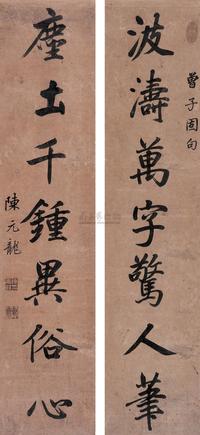 波濤萬字驚人筆
曾子固句
塵土千鍾異俗心
陳元龍